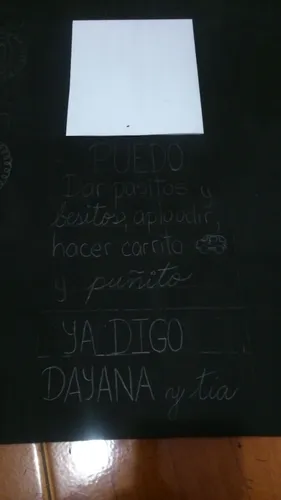 PUEDO
Dar pasitos y
besitos, aplaudir,
hacer carrito
y puñito
YA DIGO
DAYANA y tia